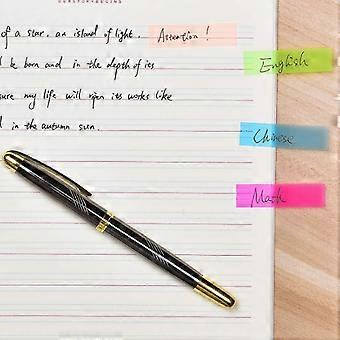 OURSTORYBEGINS
of a star, an island of light.
Attention!
l be born and in the depth of its
English
sure my life will ripen its works like
d in the autumn sun.
Chinese
Math